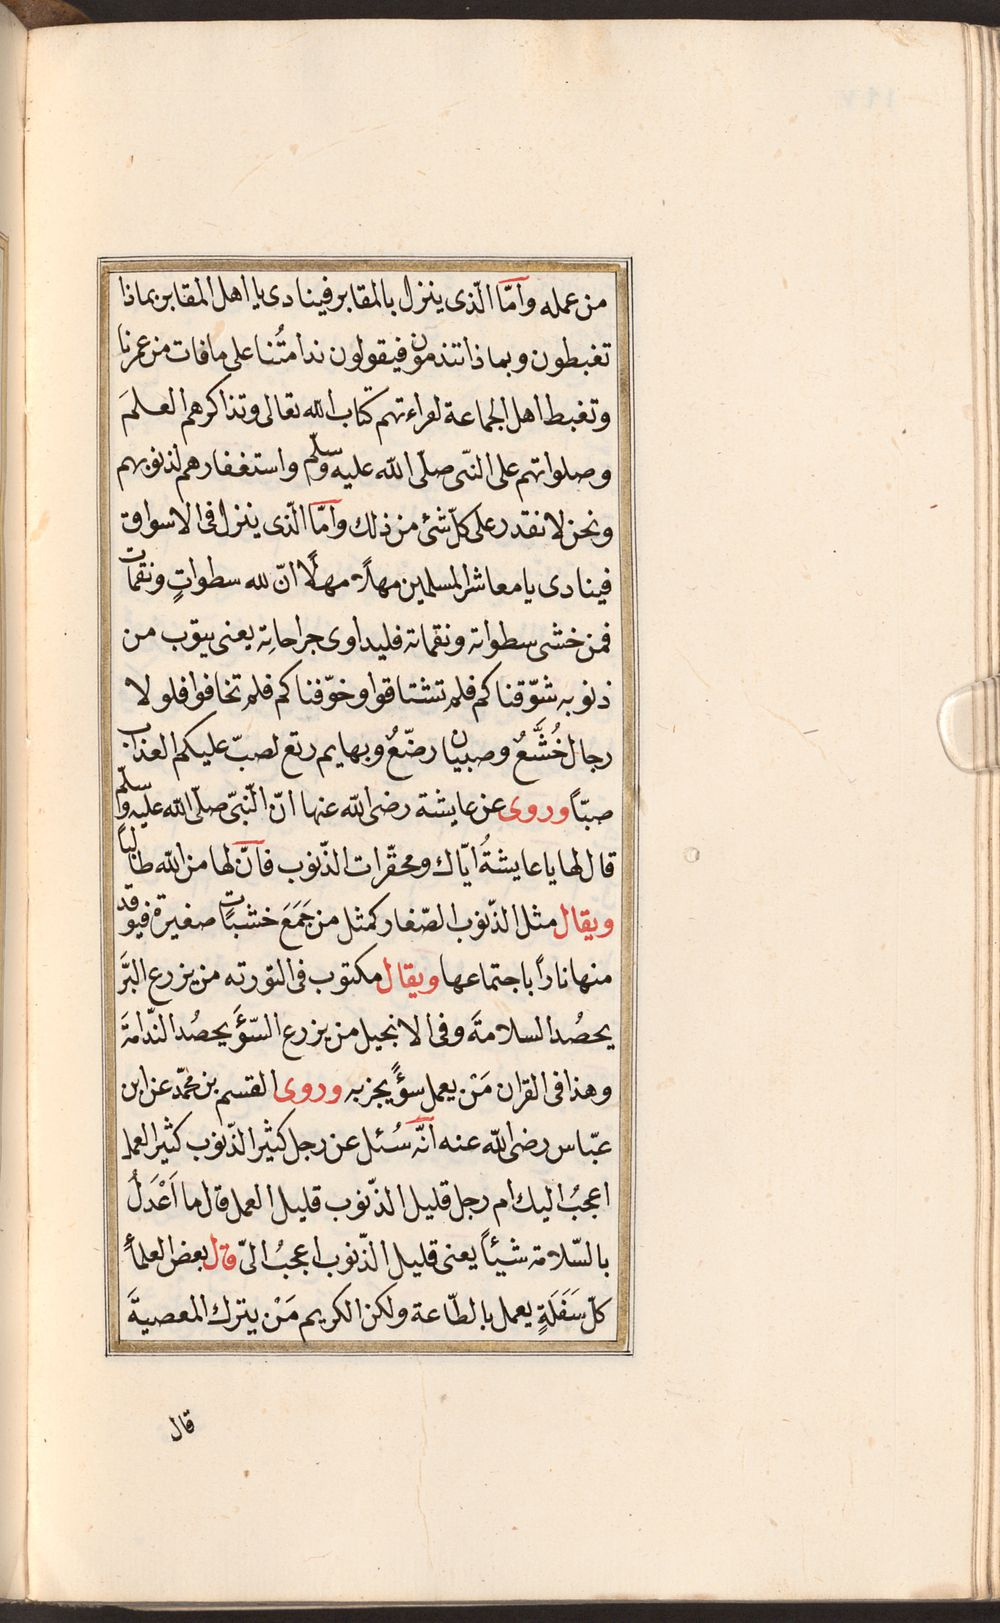 من عمله وامّا الّذى ينزل بالمقابر فينادى يا اهل المقابر بماذا
تغبطون وبماذا تندمون فيقولون ندامتُنا على ما فات من عمرنا
وتغبط اهل الجماعة لقراءتهم كتاب الله تعالى وتذاكرهم العلمَ
وصلواتهم على النّبى صلّى الله عليه وسلّم واستغفارهم لذنوبهم
ونحن لا نقدر على كلّ شئ من ذلك وامّا الّذى ينزل فى الاسواق
فينادى يا معاشر المسلمين مهلاً مهلًا انّ لله سطواتٍ ونقمات
فمن خشى سطواته ونقماته فليداوى جراحاتِه يعنى يتوب من
ذنوبه شوّقناكم فلم تشتاقوا وخوّفناكم فلم تخافوا فلولا
رجال خُشَّعٌ وصبيان رضّعٌ وبهايم رتع لصبّ عليكم العذاب
صبّاً وروى عن عايشة رضى الله عنها انّ النّبىّ صلّى الله عليه وسلّم
قال لها يا عايشةُ ايّاك ومحقّرات الذّنوب فانّ لها من الله طالباً
ويقال مثل الذّنوب الصّغار كمثل من جَمَعَ خشبات صغيرة فيوقد
منها ناراً باجتماعها ويقال مكتوب فى التورته من يزرع البرَّ
يحصُد السلامةَ وفى الانجيل من يزرع السّؤَ يحصُد النّدامةَ
وهذا فى القران مَنْ يعمل سؤً يجز به وروى القسم بن محمّد عن ابن
عبّاس رضى الله عنه انّه سُئل عن رجل كثير الذّنوب كثير العمل
اعجبُ اليك ام رجل قليل الذّنوب قليل العمل قال ما اَعْدَلُ
بالسّلامة شيئاً يعنى قليل الذّنوب اعجبُ الىّ قال بعض العلماءِ
كلّ سَفَلَةٍ يعمل بالطّاعة ولكن الكريم مَنْ يترك المعصيةَ
قال